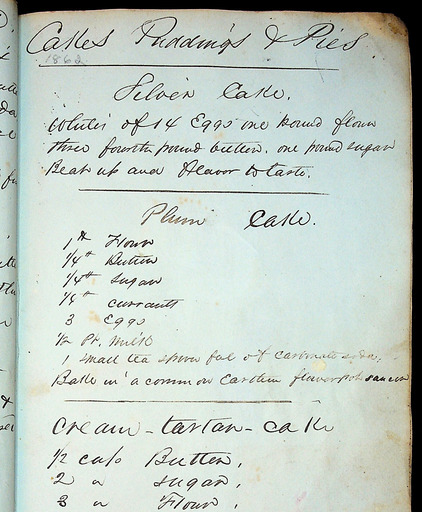 Cakes Puddings & Pies
1862
Silver Cake.
Whites of 14 Eggs one pound flour
three fourths pound butter, one pound sugar
Beat up and flavor to taste.
Plum Cake.
1 lb Flour
1/4 lb Butter
1/4 lb Sugar
1/4 lb currants
3 Eggs
1/2 Pt. Milk
1 small tea spoon ful of carbonate soda,
Bake in a common Earthen flowerpot saucer
cream-tartar-cake
1/2 cup Butter,
2 " sugar,
3 " Flour,